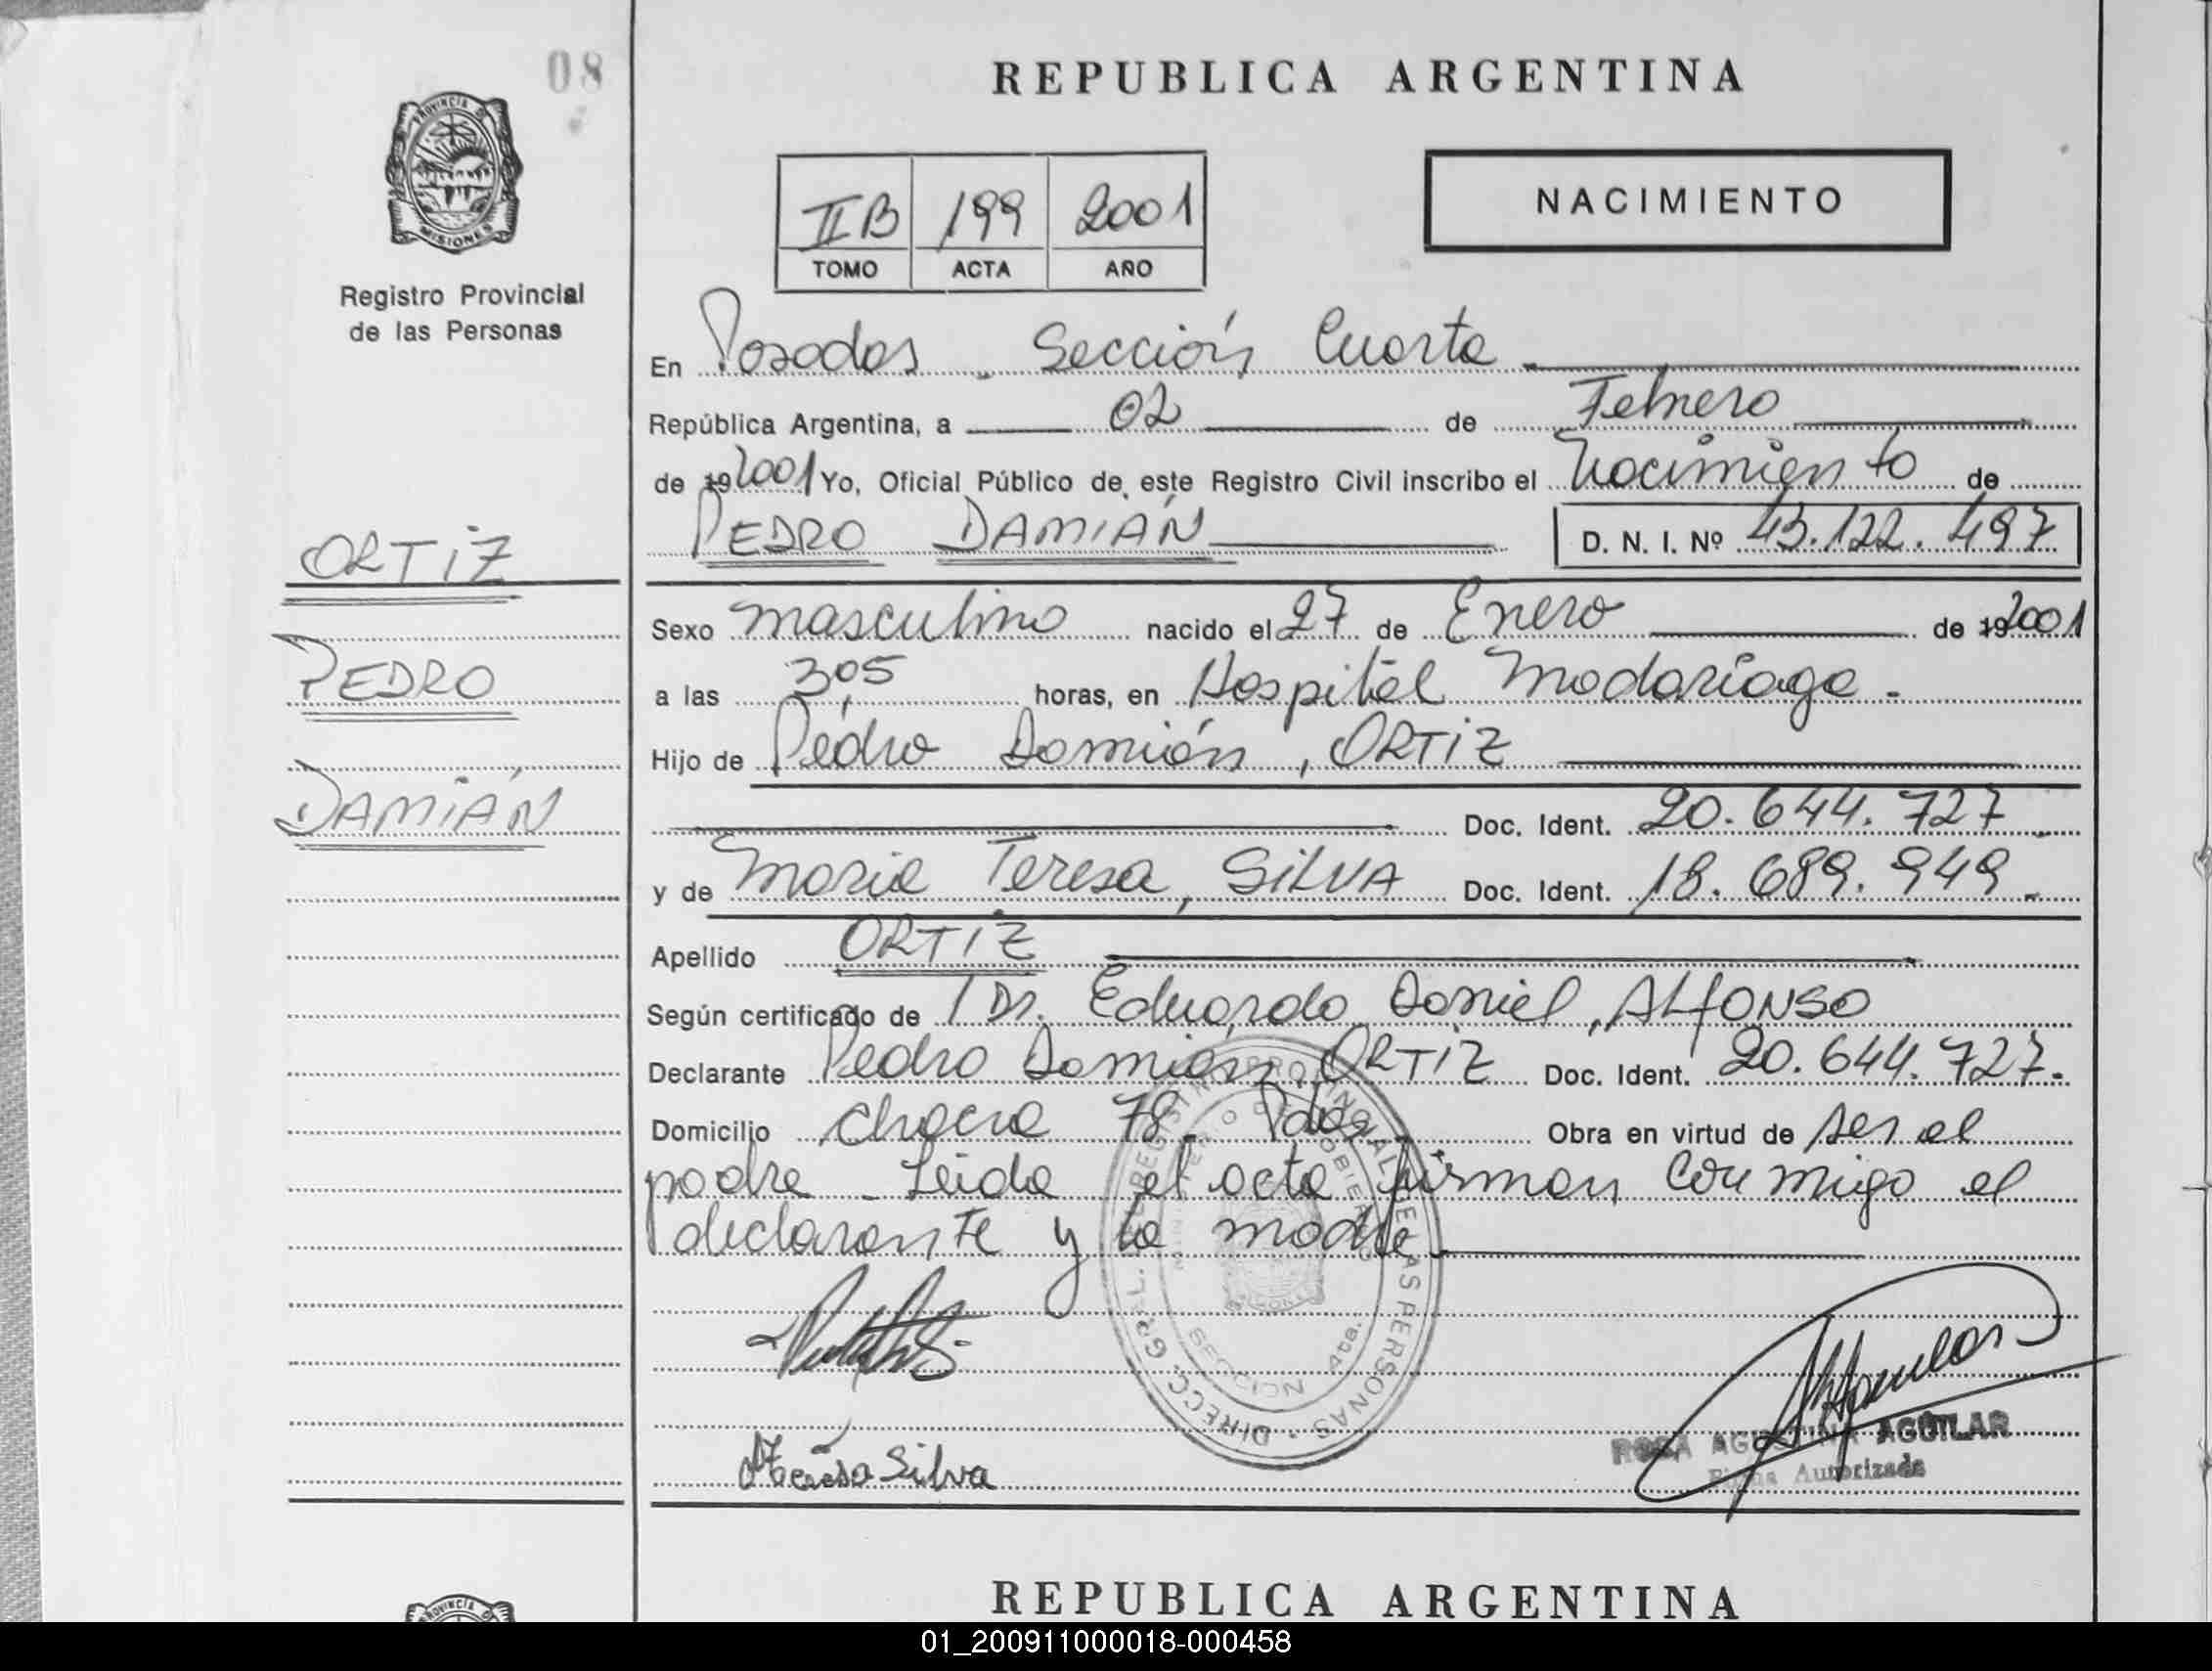 08
PROVINCIA DE
MISIONES
Registro Provincial
de las Personas
ORTIZ
PEDRO
DAMIÁN
REPUBLICA ARGENTINA
II B 199 2001
TOMO ACTA AÑO
NACIMIENTO
En Posadas - Sección Cuarta
República Argentina, a 02 de Febrero
de 19 2001 Yo, Oficial Público de este Registro Civil inscribo el Nacimiento de
PEDRO DAMIÁN D. N. I. Nº 43.122.497
Sexo masculino nacido el 27 de Enero de 19 2001
a las 3,05 horas, en Hospital Madariaga -
Hijo de Pedro Damián, ORTIZ
Doc. Ident. 20.644.727 -
y de María Teresa, SILVA Doc. Ident. 18.689.949 -
Apellido ORTIZ
Según certificado de Dr. Eduardo Daniel, ALFONSO
Declarante Pedro Damián, ORTIZ Doc. Ident. 20.644.727.
Domicilio chacra 78 - Pdas - Obra en virtud de ser el
padre - Leida el acta firman conmigo el
declarante y la madre
Mª Teresa Silva
ROSA AGUSTINA AGUILAR
Firma Autorizada
DIRECC. GRAL. DEL REGISTRO PROVINCIAL DE LAS PERSONAS
MINISTERIO DE GOBIERNO
SECCION 4ta.
REPUBLICA ARGENTINA
PROVINCIA DE
01_200911000018-000458